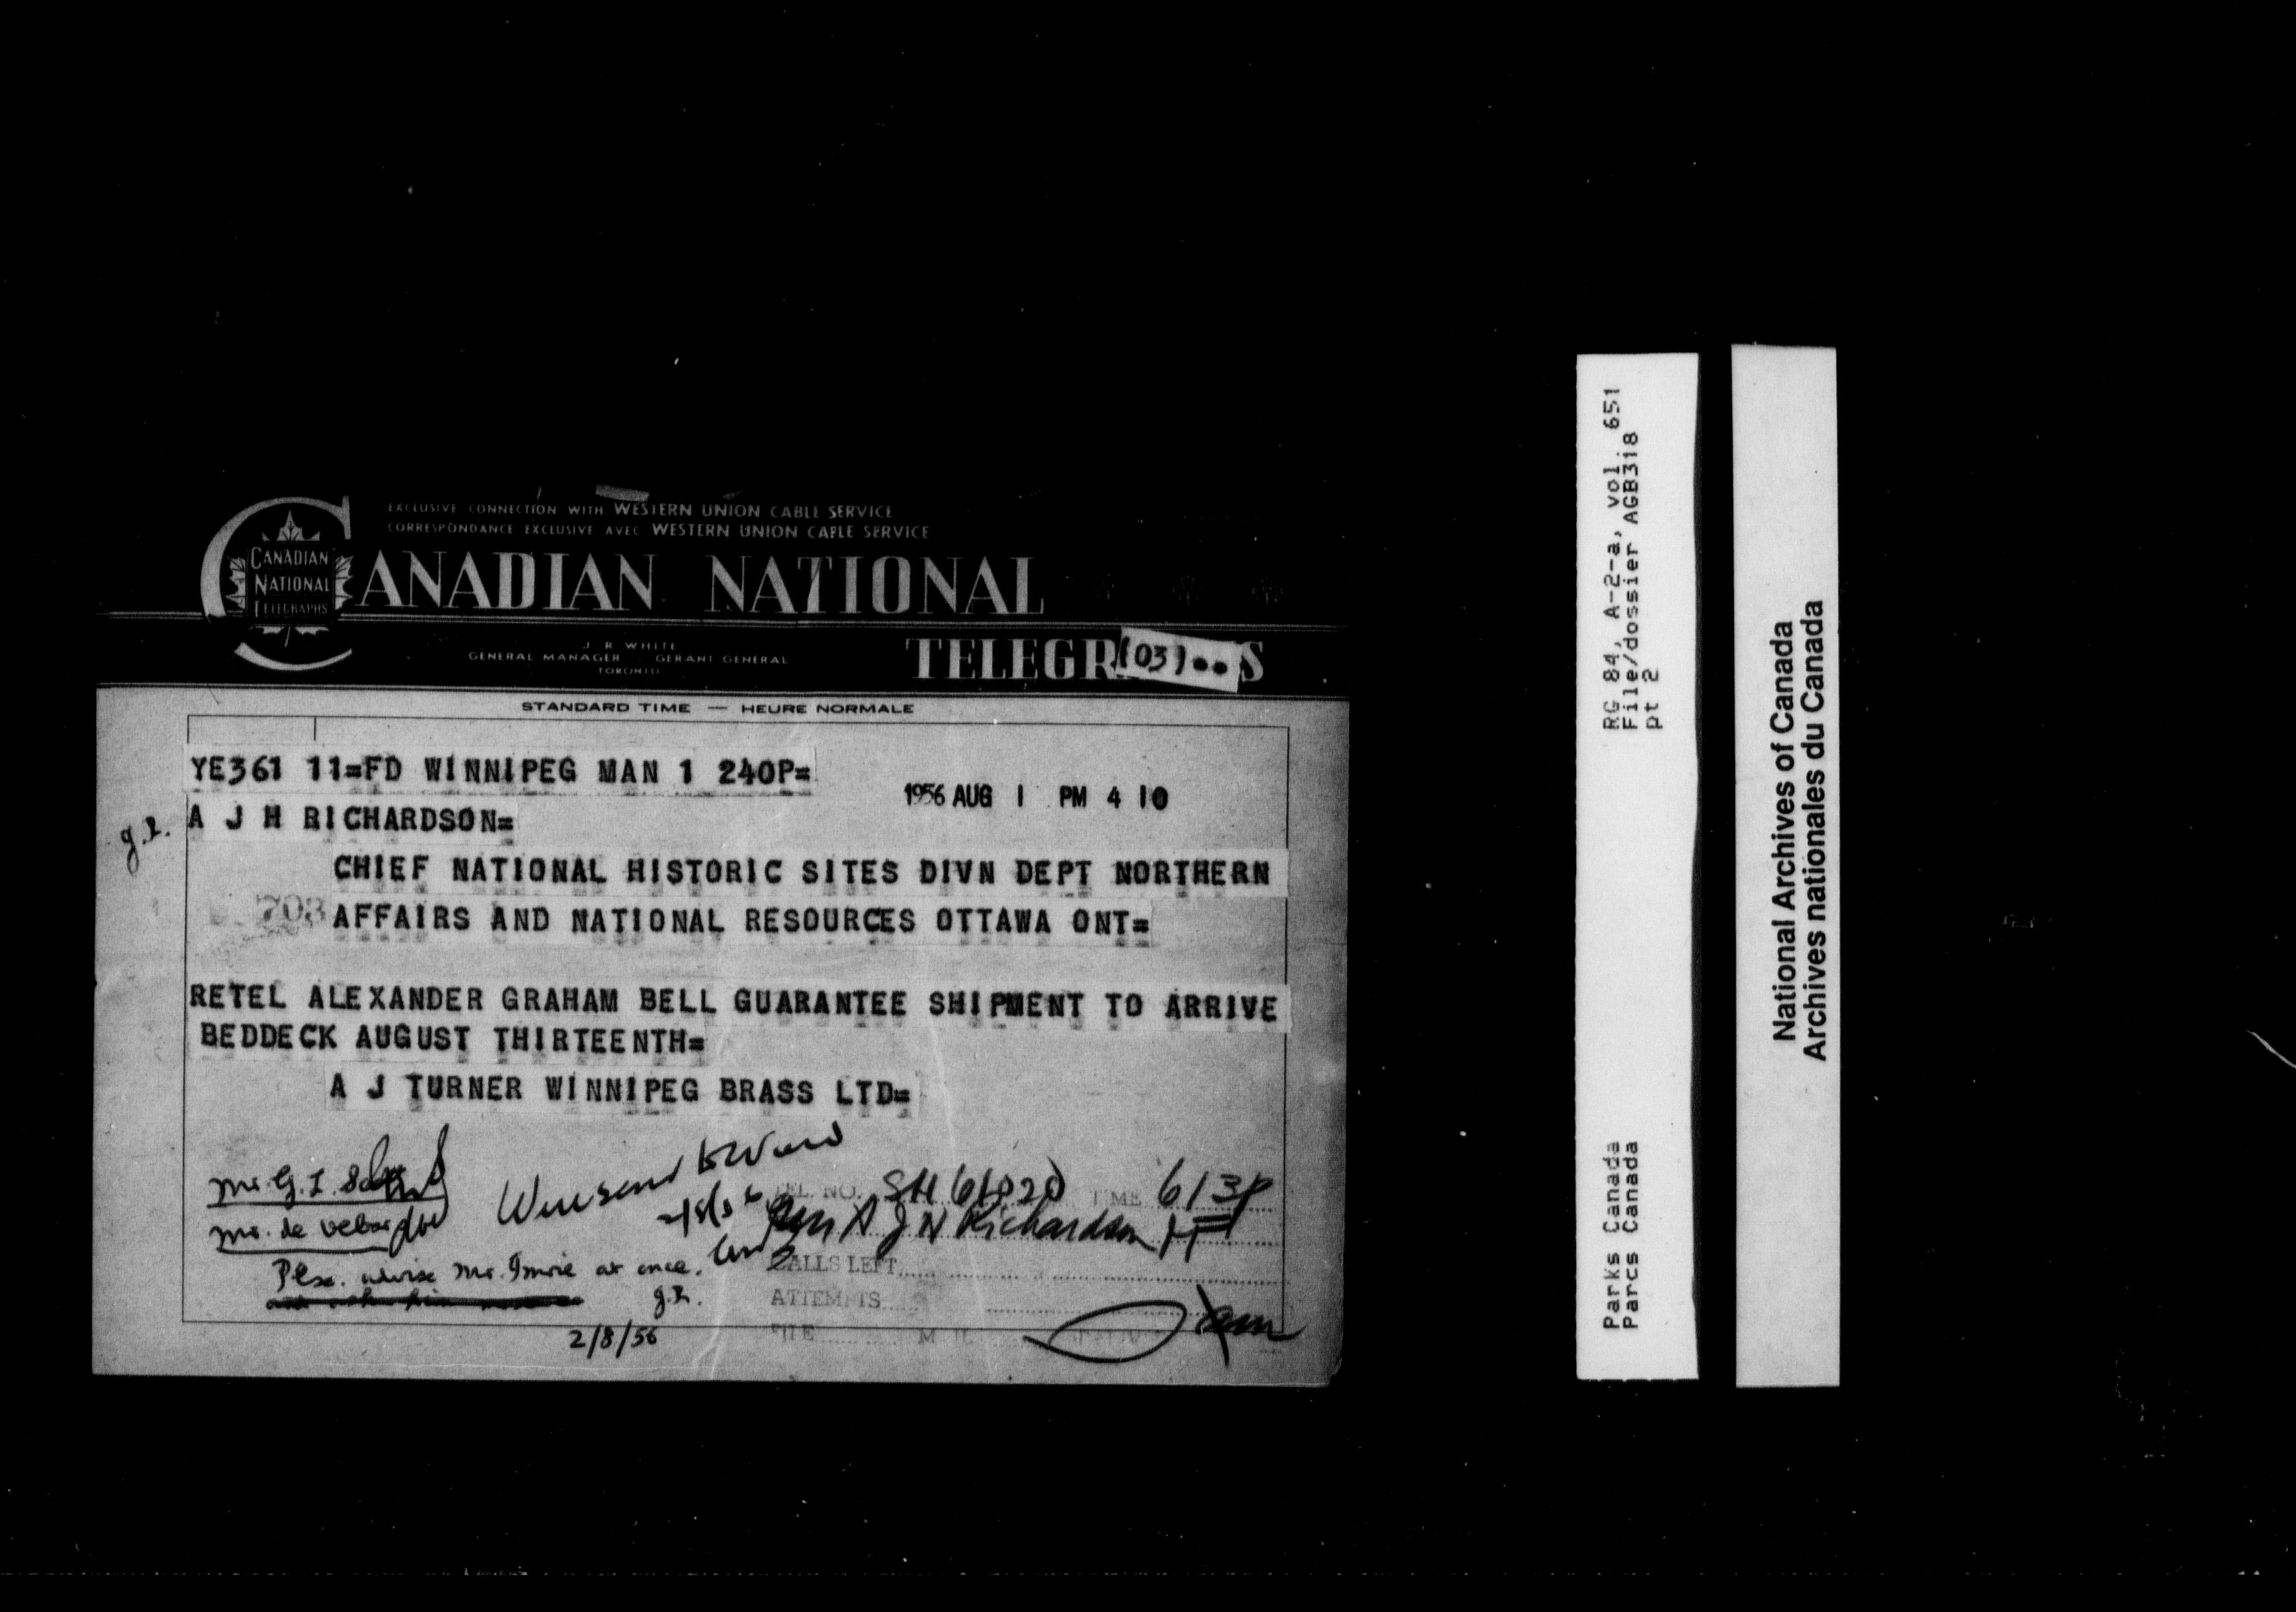 EXCLUSIVE CONNECTION WITH WESTERN UNION CABLE SERVICE
CORRESPONDANCE EXCLUSIVE AVEC WESTERN UNION CABLE SERVICE
CANADIAN NATIONAL
CANADIAN
NATIONAL
TELEGRAPHS
J R WHITE
GENERAL MANAGER GERANT GENERAL
TORONTO
TELEGR (03) S
STANDARD TIME — HEURE NORMALE
YE361 11=FD WINNIPEG MAN 1 240P=
1956 AUG 1 PM 4 10
A J H RICHARDSON=
CHIEF NATIONAL HISTORIC SITES DIVN DEPT NORTHERN
703
AFFAIRS AND NATIONAL RESOURCES OTTAWA ONT=
RETEL ALEXANDER GRAHAM BELL GUARANTEE SHIPMENT TO ARRIVE
BEDDECK AUGUST THIRTEENTH=
A J TURNER WINNIPEG BRASS LTD=
Mr. G. I.
Mr. de
Plse. advise Mr. Imrie at once.
2/8/56
TEL. NO. TIME 613P
A J H Richardson
CALLS LEFT
ATTEMPTS
FILE
RG 84, A-2-a, vol. 651
File/dossier AGB318
pt 2
Parks Canada
Parcs Canada
National Archives of Canada
Archives nationales du Canada